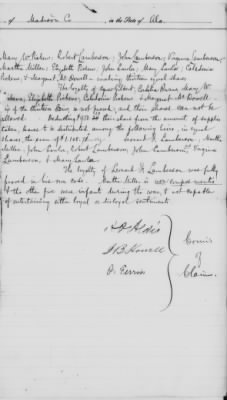 of Madison Co in the State of Ala.
Mary W Pickens, Robert Lamberson, John Lamberson, Virginia Lamberson,
Martha Miller, Elizabeth Pickens, John Lawler, Mary Lawler, Caledonia
Pickens, & Margaret McDowell making thirteen equal shares.
The loyalty of Mary W
Pickens, Elizabeth Pickens, Caledonia Pickens & Margaret McDowell
is of the thirteen heirs is not proved, and their shares can not be
allowed. Deducting their share from the amount of supplies
taken, leaves to be distributed among the following heirs, in equal
shares, the sum of Leonard H. Lamberson, Martha
Miller, John Lawler, Robert Lamberson, John Lamberson, Virginia
Lamberson, & Mary Lawler.
The loyalty of Leonard H Lamberson was fully
proved in his own case. Martha Miller is non compos mentis
& the other five were infants during the war, & not capable
of entertaining either loyal or disloyal sentiments.
A O Aldis
J B Howell
O. Ferriss
Comrs
of
Claims